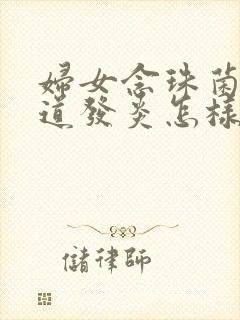 婦女念珠菌
道發炎怎樣
儲律師